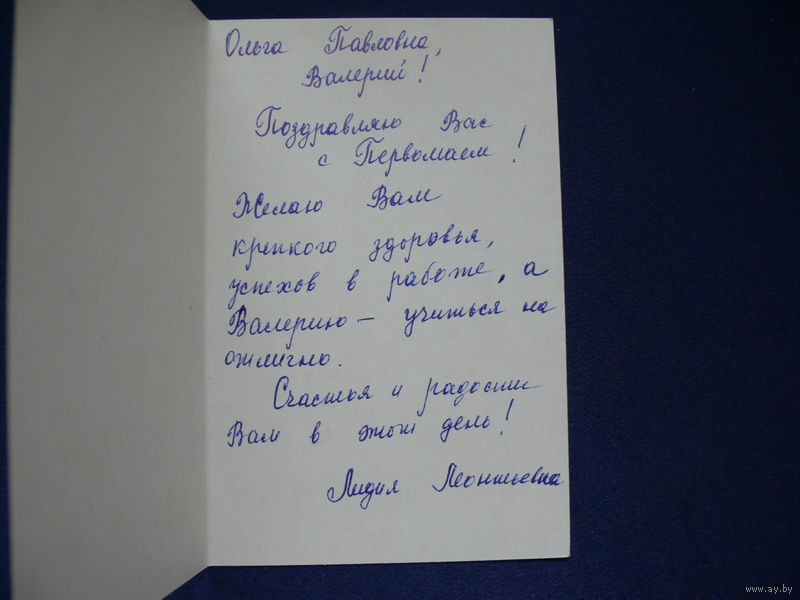 Ольга Павловна,
Валерий!
Поздравляю Вас
с Первомаем!
Желаю Вам
крепкого здоровья,
успехов в работе, а
Валерию – учиться на
отлично.
Счастья и радости
Вам в этот день!
Лидия Леонтьевна
www.ay.by